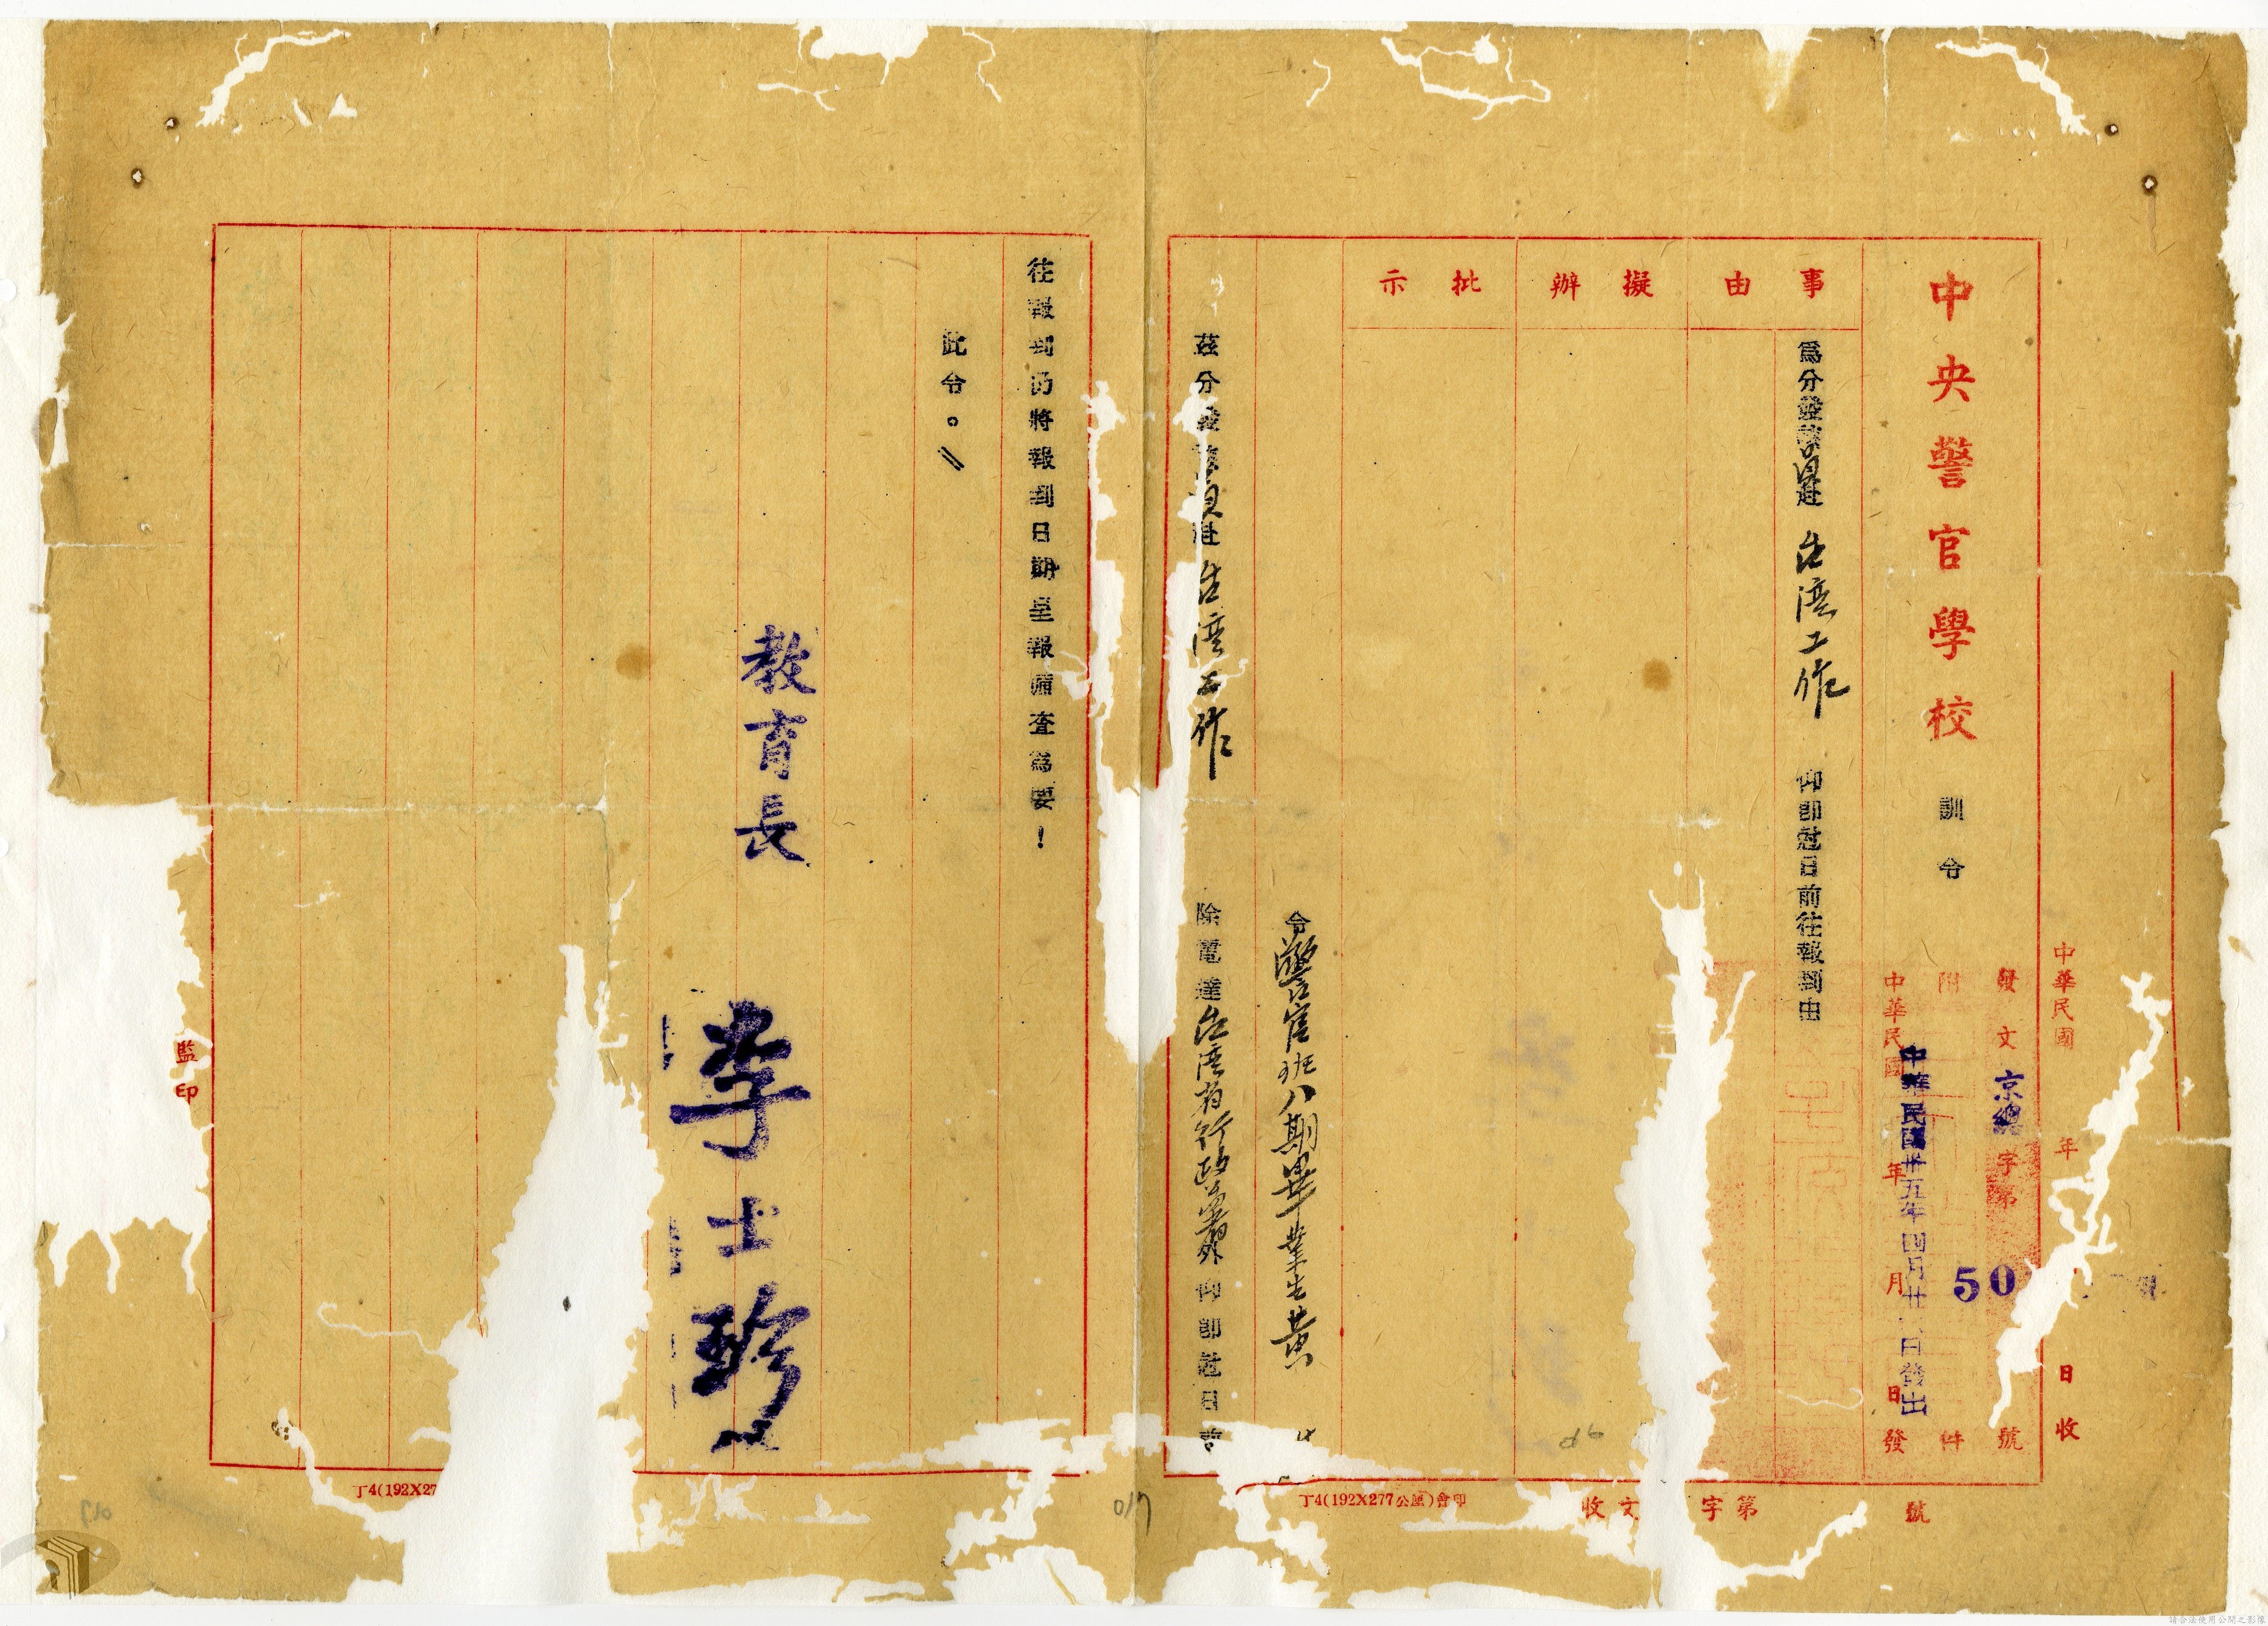 中華民國 年 月 日收
中央警官學校 訓令
發文 京總 字第 50 號
附 件
中華民國 年 月 日發
中華民國卅五年四月廿 日發出
事由
為分發該員赴 台灣工作 仰即尅日前往報到由
擬辦
批示
令警官班八期畢業生黃
茲分發該員赴台灣工作 除電達台灣省行政公署外仰即尅日前
往報到仍將報到日期呈報備查為要!
此令。
教育長 李士珍
監印
丁4(192X27
丁4(192X277公厘)會印
收文 字第 號
017
請合法使用公開之影像